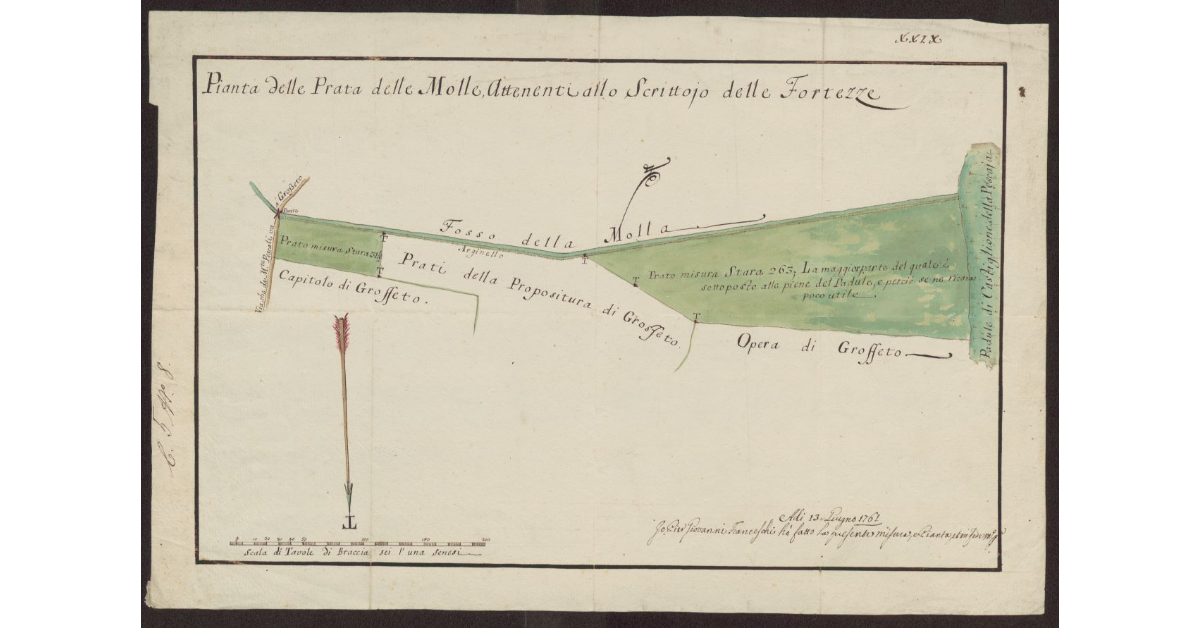 XXIX
Pianta delle Prata delle Molle, Attenenti allo Scrittojo delle Fortezze
Grosseto
Ponte
Fosso della Molla
Arginello
Prato misura Stara
Prati della Propositura di Grosseto
Capitolo di Grosseto.
Prato misura Stara 263; La maggior parte del quale è
sottoposto alla piene del Padule, e perciò se ne ricava
poco utile
Opera di Grosseto
Padule di Castiglione della Pescaja
T
Adi 13. Giugno 1761
Io Pier Giovanni Franceschi hò fatto la presente misura, e Pianta
Scala di Tavole di Braccia sei l'una senesi